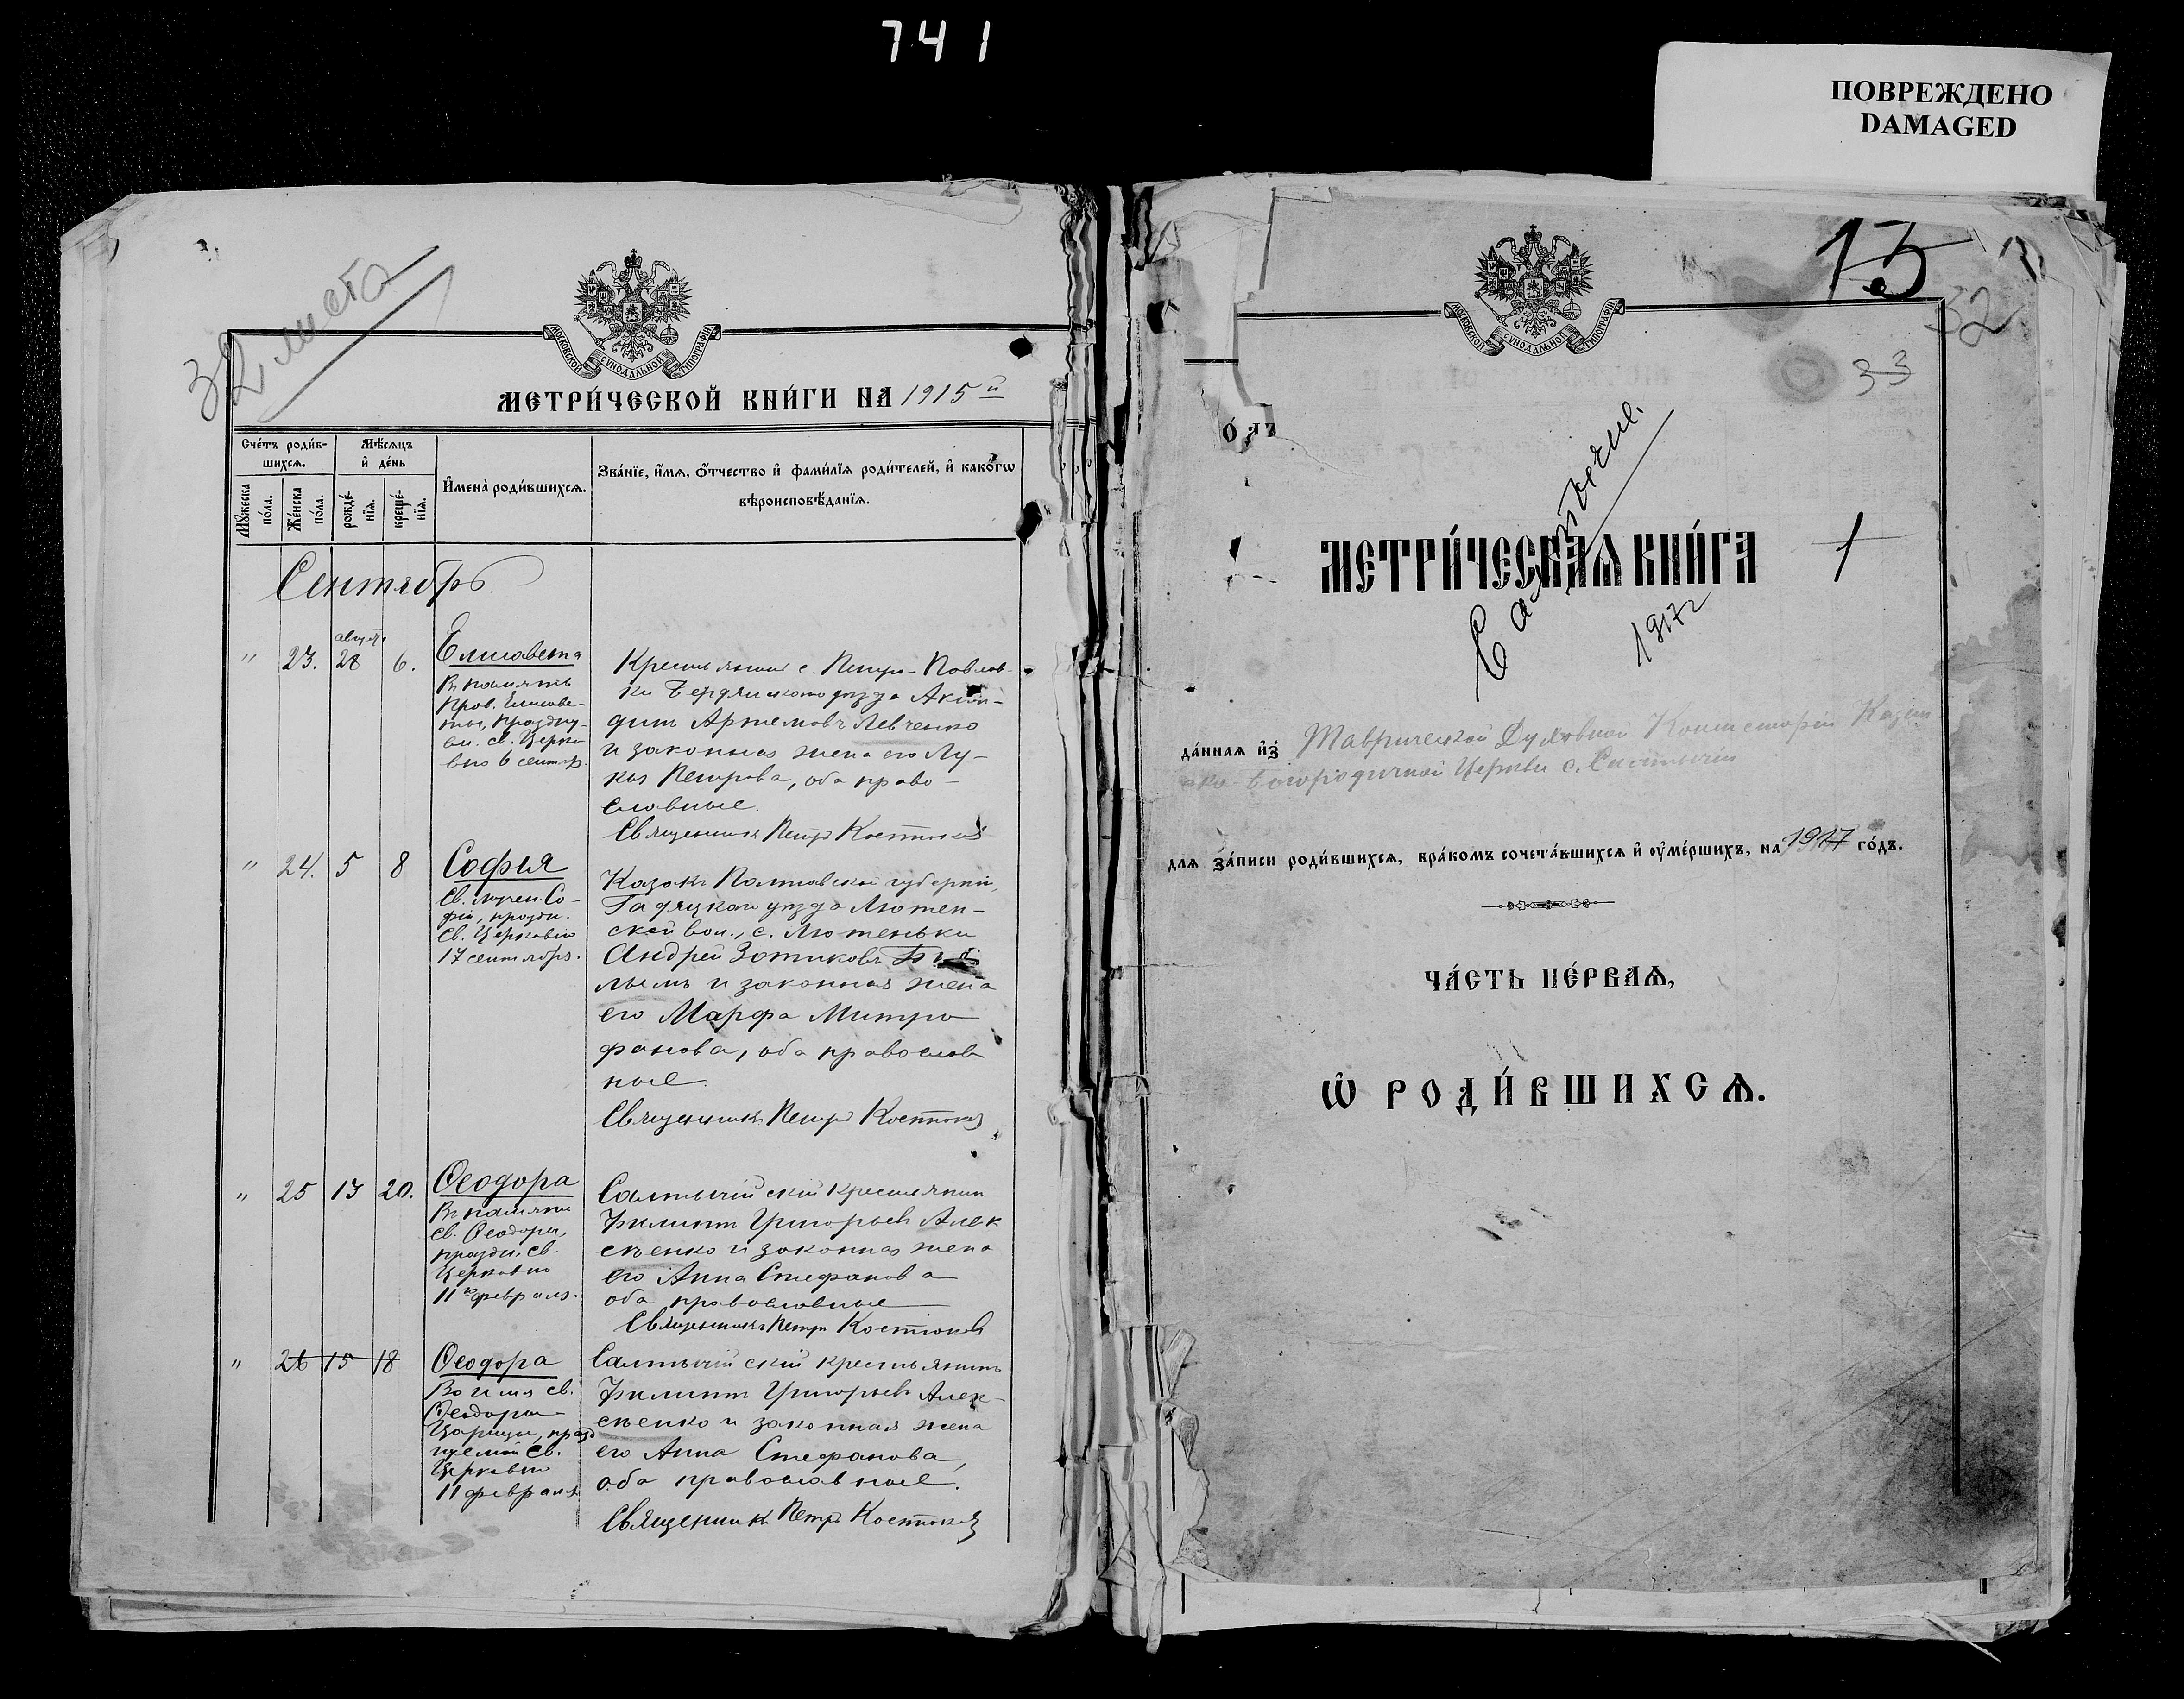 741
ПОВРЕЖДЕНО
DAMAGED
32 листа
МОСКОВСКОЙ СѴНОДАЛЬНОЙ ТИПОГРАФІИ
МЕТРИ́ЧЕСКОЙ КНИ́ГИ НА 1915й
Сче́тъ роди́в-
шихсѧ.
Мѣ́сѧцъ
и҆ де́нь
И҆мена̀ роди́вшихсѧ.
Зва́нїе, и҆́мѧ, ѻ҆́тчество и҆ фами́лїѧ роди́телей, и҆ како́гѡ
вѣроисповѣ́данїѧ.
Мꙋ́жеска
по́ла.
Же́нска
по́ла.
рожде́-
нїѧ.
креще́-
нїѧ.
Сентябрь.
" 23. августа 28 6.
Елисавета
Въ память
Прав. Елисаве-
ты, праздну-
ем. св. Церко-
вью 6 сентяб.
Крестьянинъ с. Петро-Павлов-
ки Бердянскаго уѣзда
Артемовъ Левченко
и законная жена его Лу-
кія Петрова, оба право-
славные.
Священникъ Петръ Костюковъ
" 24. 5 8
София
Св. Софіи, праздн.
Св. Церковію
17 сентября.
Казакъ Полтавской губерніи,
Гадяцкаго уѣзда Лютен-
ской вол., с. Лютеньки
Андрей Зотиковъ
и законная жена
его Марфа Митро
фанова, оба православ
ные.
Священникъ Петръ Костюковъ
" 25 13 20.
Ѳеодора
Въ память
св. Ѳеодоры,
праздн. св.
Церковію
11го февраля.
Салтычійскій крестьянинъ
Филиппъ Григорьевъ Алек
сѣенко и законная жена
его Анна Стефанова
оба православные
Священникъ Петръ Костюковъ
" 26 15 18
Ѳеодора
Во имя св.
Ѳеодоры
Царицы, празд
нуемой св.
Церковію
11 февраля
Салтычійскій крестьянинъ
Филиппъ Григорьевъ Алек-
сѣенко и законная жена
его Анна Стефанова,
оба православные.
Священникъ Петръ Костюковъ
15
32
33
МОСКОВСКОЙ СѴНОДАЛЬНОЙ ТИПОГРАФІИ
Салтычія.
1917 г
МЕТРИ́ЧЕСКАѦ КНИ́ГА
1
да́ннаѧ и҆з̾ Таврической Духовной Консисторіи Казан
ско-Богородичной Церкви с. Салтычіи
для за́писи роди́вшихсѧ, бра́комъ сочета́вшихсѧ и҆ ᲂу҆ме́ршихъ, на 1917 го́дъ.
ЧА́СТЬ ПЕ́РВАѦ,
Ѡ҆ РОДИ́ВШИХСѦ.